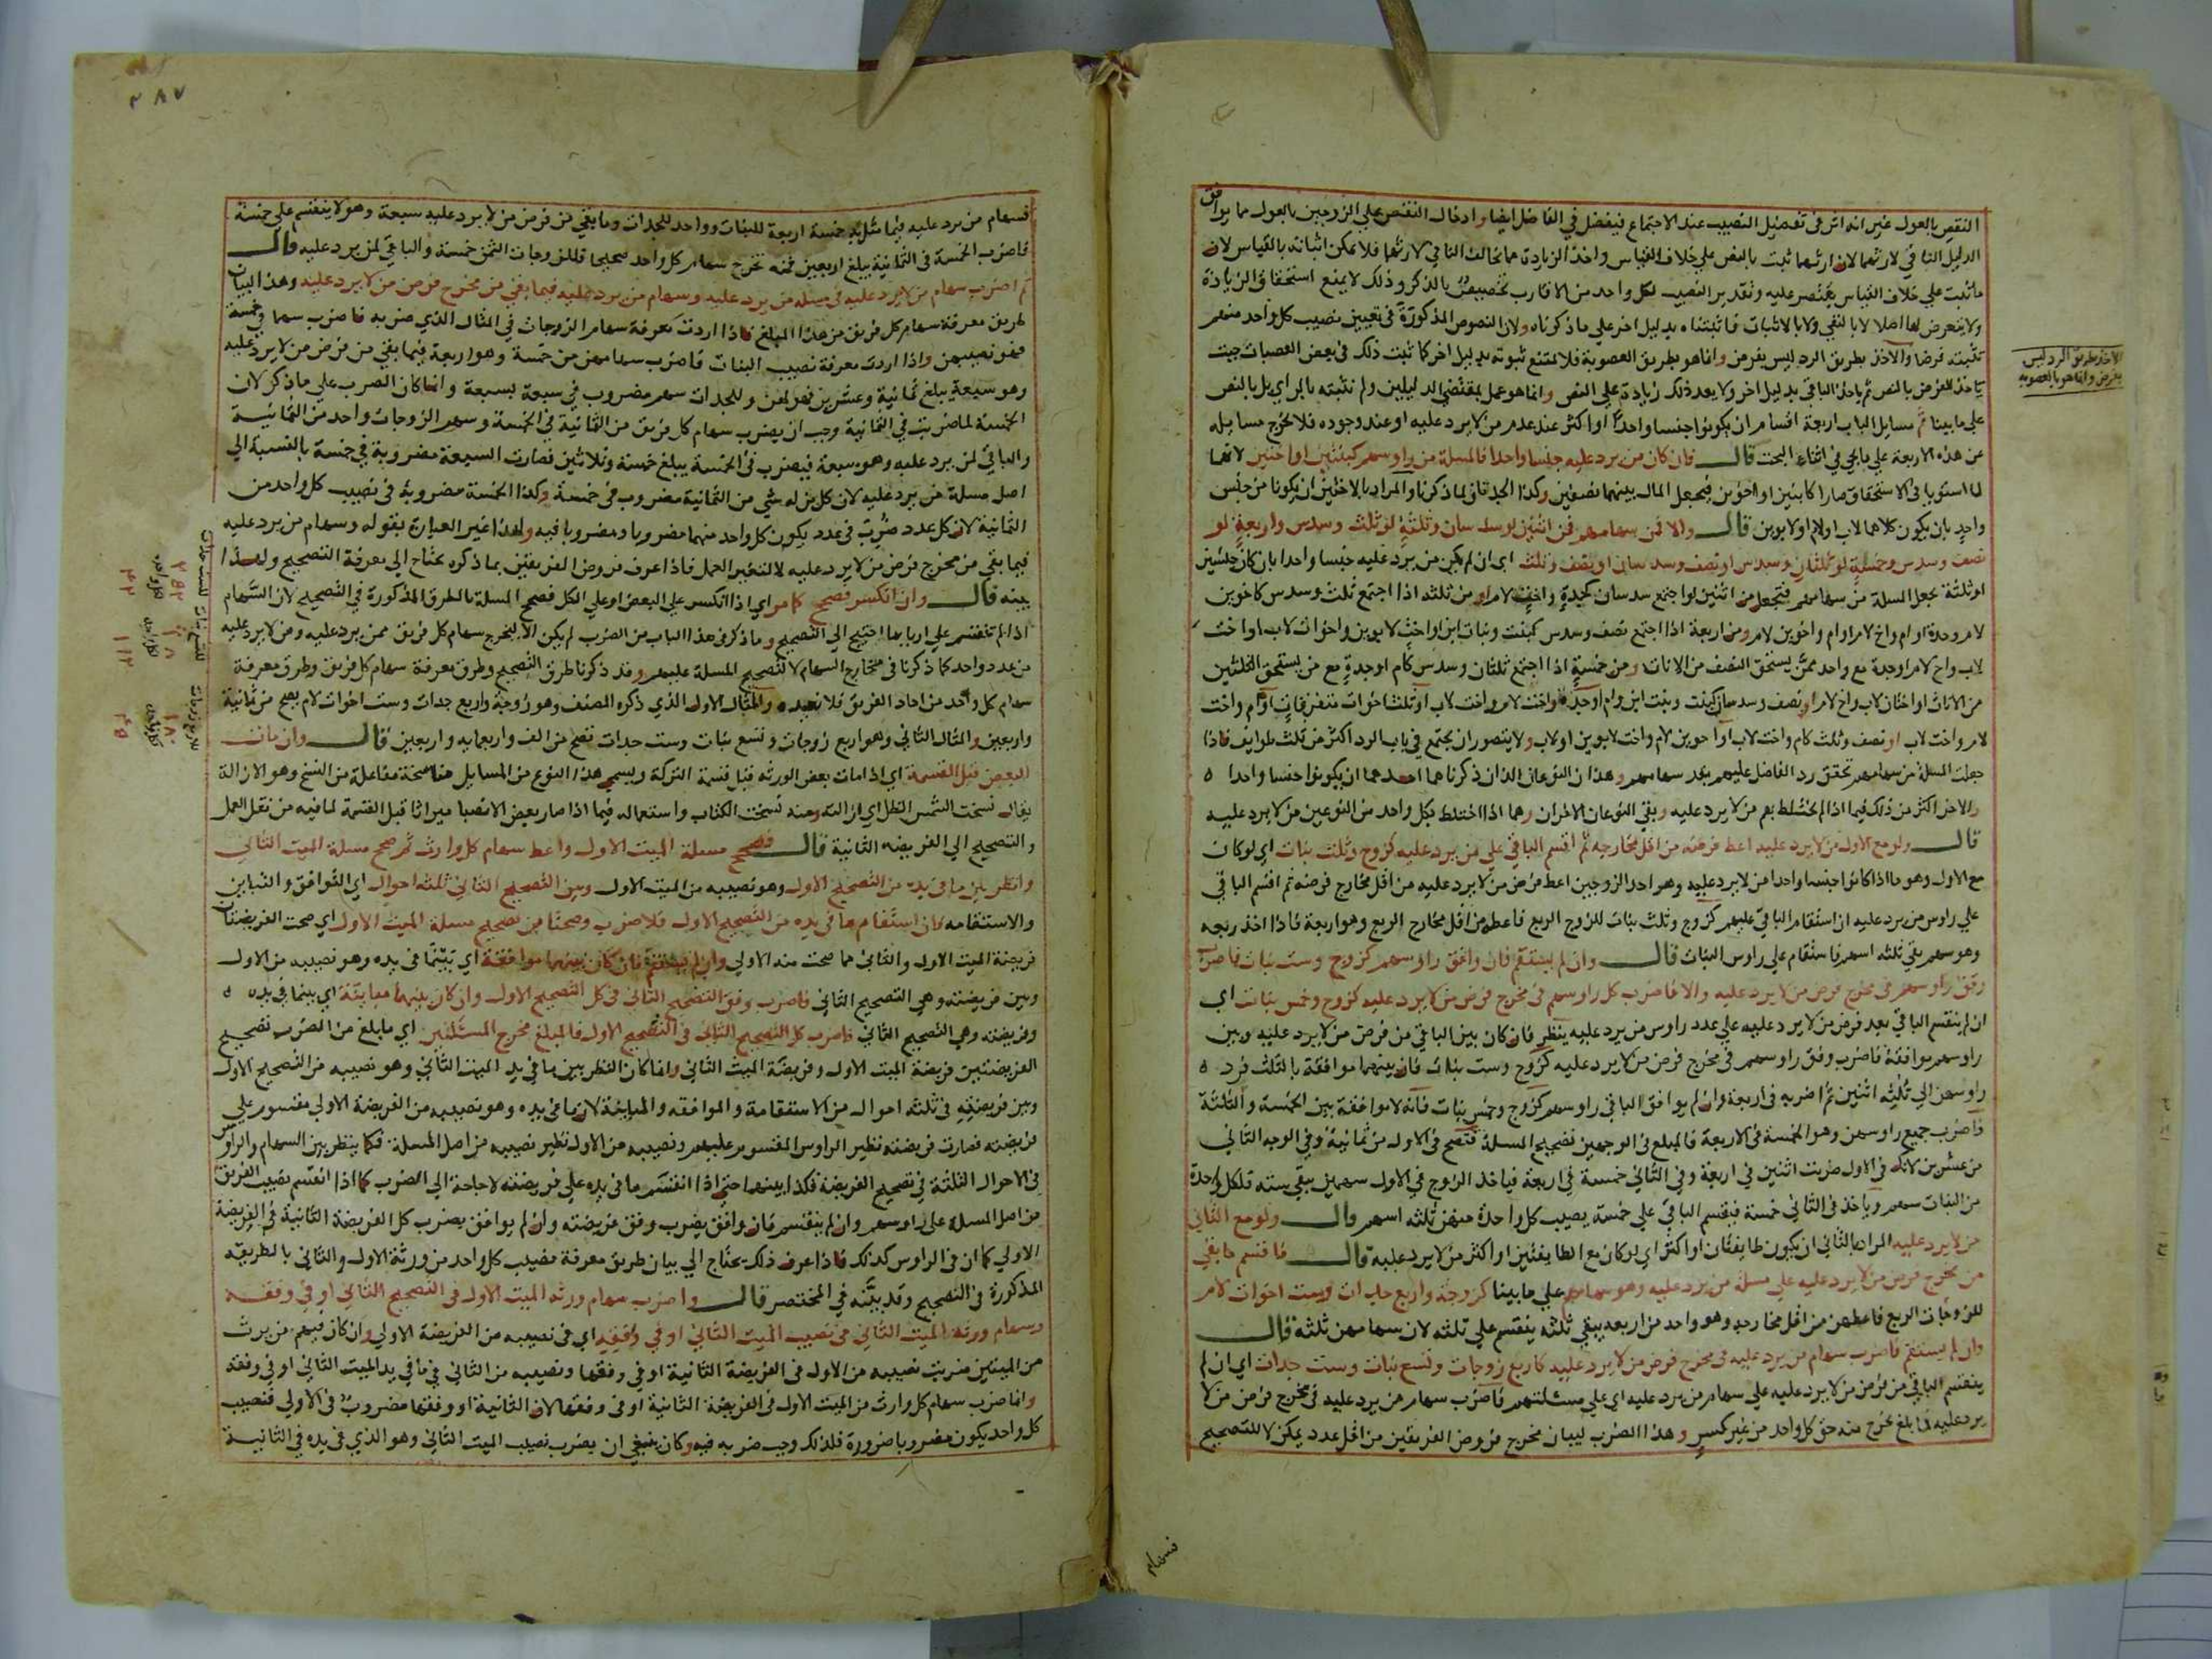 النقص بالعول غير انه اثر في تفضيل النصيب عند الاجتماع فيفضل في الفاضل ايضا وادخال النقص على الزوجين بالعول مما يوافق
الدليل النافي لارثهما لان ارثهما ثبت بالنص على خلاف القياس واخذ الزيادة مما يخالف النافي لارثهما فلا يمكن اثباته بالقياس لان
ما ثبت على خلاف القياس يقتصر عليه وتقدير النصيب لكل واحد من الاقارب تخصيص بالذكر وذلك لا يمنع استحقاق الزيادة
ولا يتعرض لها اصلا لا بالنفي ولا بالاثبات فاثبتناه بدليل اخر على ما ذكرناه ولان النصوص المذكورة في تعيين نصيب كل واحد منهم
تثبته فرضا والاخذ بطريق الرد ليس بفرض وانما هو بطريق العصوبة فلا يمتنع ثبوته بدليل اخر كما ثبت ذلك في بعض العصبات حيث
ياخذ الفرض بالنص ثم ياخذ الباقي بدليل اخر ولا يعد ذلك زيادة على النص وانما هو عمل بمقتضى الدليلين ولم نثبته بالراي بل بالنص
على ما بينا ثم مسايل الباب اربعة اقسام ان يكونوا جنسا واحدا او اكثر عند عدم من لا يرد عليه او عند وجوده فلا تخرج مسايله
عن هذه الاربعة على ما يجي في اثناء البحث قال فان كان من يرد عليه جنسا واحدا فالمسلة من راوسهم كبنتين او اختين لانهما
لما استويا في الاستحقاق صارا كابنين او اخوين فيجعل المال بينهما نصفين وكذا الجدتان لما ذكرنا والمراد بالاختين ان يكونا من جنس
واحد بان يكون كلاهما لاب او لام او لابوين قال والا فمن سهامهم فمن اثنين لو سدسان وثلثة لو ثلث وسدس واربعة لو
نصف وسدس وخمسة لو ثلثان وسدس او نصف وسدسان او نصف وثلث اي ان لم يكن من يرد عليه جنسا واحدا بان كان جنسين
او ثلثة يجعل المسلة من سهامهم فتجعل من اثنين لو اجتمع سدسان كجدة واخت لام او من ثلثه اذا اجتمع ثلث وسدس كاخوين
لام وجدة او ام واخ لام او ام واخوين لام ومن اربعة اذا اجتمع نصف وسدس كبنت وبنات ابن او اخت لابوين واخوات لاب او اخت
لاب واخ لام او جدة مع واحد ممن يستحق النصف من الاناث ومن خمسة اذا اجتمع ثلثان وسدس كام او جدة مع من يستحق الثلثين
من الاناث او اختان لاب واخ لام او نصف وسدسان كبنت وبنت ابن وام او جدة واخت لام واخت لاب او ثلث اخوات متفرقات او ام واخت
لام واخت لاب او نصف وثلث كام واخت لاب او اخوين لام واخت لابوين او لاب ولا يتصور ان يجتمع في باب الرد اكثر من ثلث طوايف فاذا
جعلت المسلة من سهامهم تحقق رد الفاضل عليهم بقدر سهامهم وهذان النوعان اللذان ذكرناهما احدهما ان يكونوا جنسا واحدا
والاخر اكثر من ذلك فيما اذا لم يختلط بهم من لا يرد عليه وبقي النوعان الاخران وهما اذا اختلط بكل واحد من النوعين من لا يرد عليه
قال ولو مع الاول من لا يرد عليه اعط فرضه من اقل مخارجه ثم اقسم الباقي على من يرد عليه كزوج وثلث بنات اي لو كان
مع الاول وهو ما اذا كانوا جنسا واحدا من لا يرد عليه وهو احد الزوجين اعط فرض من لا يرد عليه من اقل مخارج فرضه ثم اقسم الباقي
على راوس من يرد عليه ان استقام الباقي عليهم كزوج وثلث بنات للزوج الربع فاعطه من اقل مخارج الربع وهو اربعة فاذا اخذ ربعه
وهو سهم بقي ثلثه اسهم فاستقام على راوس البنات قال وان لم يستقم فان وافق راوسهم كزوج وست بنات فاضرب
وفق راوسهم في مخرج فرض من لا يرد عليه والا فاضرب كل راوسهم في مخرج فرض من لا يرد عليه كزوج وخمس بنات اي
ان لم ينقسم الباقي بعد فرض من لا يرد عليه على عدد راوس من يرد عليه ينظر فان كان بين الباقي من فرض من لا يرد عليه وبين
راوسهم موافقة فاضرب وفق راوسهم في مخرج فرض من لا يرد عليه كزوج وست بنات فان بينهما موافقة بالثلث فرد
راوسهن الى ثلثه اثنين ثم اضربه في اربعة وان لم يوافق الباقي راوسهم كزوج وخمس بنات فانه لا موافقة بين الخمسة والثلثة
فاضرب جميع راوسهن وهو الخمسة في الاربعة فالمبلغ في الوجهين تصحيح المسلة فتصح في الاول من ثمانية وفي الوجه الثاني
من عشرين لانك في الاول ضربت اثنين في اربعة وفي الثاني خمسة في اربعة فياخذ الزوج في الاول سهمين يبقى سته فلكل واحدة
من البنات سهم وياخذ في الثاني خمسة فينقسم الباقي على خمسة يصيب كل واحدة منهن ثلثه اسهم قال ولو مع الثاني
من لا يرد عليه المراد بالثاني ان يكون طايفتان او اكثر اي لو كان مع الطايفتين او اكثر من لا يرد عليه قال فاقسم ما بقي
من مخرج فرض من لا يرد عليه على مسلة من يرد عليه وهو سهامهم على ما بينا كزوجة واربع جدات وست اخوات لام
للزوجات الربع فاعطهن من اقل مخارجه وهو واحد من اربعه يبقى ثلثه ينقسم على ثلثه لان سهامهن ثلثة قال
وان لم يستقم فاضرب سهام من يرد عليه في مخرج فرض من لا يرد عليه كاربع زوجات وتسع بنات وست جدات اي ان لم
ينقسم الباقي من فرض من لا يرد عليه على سهام من يرد عليه اي على مسئلتهم فاضرب سهام من يرد عليه في مخرج فرض من لا
يرد عليه فما بلغ تخرج منه حق كل واحد من غير كسر وهذا الضرب لبيان مخرج فروض الفريقين من اقل عدد يمكن لا للتصحيح
الاخذ بطريق الرد ليس
بفرض وانما هو بالعصوبه
فسهام
٢٨٧
فسهام من يرد عليه فيما مثل به خمسة اربعة للبنات وواحد للجدات وما بقي من فرض من لا يرد عليه سبعة وهو لا ينقسم على خمسة
فاضرب الخمسة في الثمانية يبلغ اربعين فمنه تخرج سهام كل واحد صحيحا فللزوجات الثمن خمسة والباقي لمن يرد عليه قال
ثم اضرب سهام من لا يرد عليه في مسلة من يرد عليه وسهام من يرد عليه فيما بقي من مخرج فرض من لا يرد عليه وهذا لبيان
طريق معرفة سهام كل فريق من هذا المبلغ فاذا اردت معرفة سهام الزوجات في المثال الذي ضربه فاضرب سهما في خمسة
فهو نصيبهن واذا اردت معرفة نصيب البنات فاضرب سهامهن من خمسة وهو اربعة فيما بقي من فرض من لا يرد عليه
وهو سبعة يبلغ ثمانية وعشرين فهو لهن وللجدات سهم مضروب في سبعة بسبعة وانما كان الضرب على ما ذكر لان
الخمسة لما ضربت في الثمانية وجب ان يضرب سهام كل فريق من الثمانية في الخمسة وسهم الزوجات واحد من الثمانية
والباقي لمن يرد عليه وهو سبعة فيضرب في الخمسة يبلغ خمسة وثلاثين فصارت السبعة مضروبة في خمسة بالنسبة الى
اصل مسلة من يرد عليه لان كل من له شي من الثمانية مضروب في خمسة وكذا الخمسة مضروبة في نصيب كل واحد من
الثمانية لان كل عدد ضرب في عدد يكون كل واحد منهما مضروبا ومضروبا فيه ولهذا غير العبارة بقوله وسهام من يرد عليه
فيما بقي من مخرج فرض من لا يرد عليه لا لتغير العمل فاذا عرف فروض الفريقين بما ذكره يحتاج الى معرفة التصحيح ولهذا
بينه قال وان انكسر فصحح كما مر اي اذا انكسر على البعض او على الكل فصحح المسلة بالطرق المذكورة في التصحيح لان السهام
اذا لم تنقسم على اربابها احتيج الى التصحيح وما ذكر في هذا الباب من الضرب لم يكن الا لتخرج سهام كل فريق ممن يرد عليه ومن لا يرد عليه
من عدد واحد كما ذكرنا في مخارج السهام لا لتصحيح المسلة عليهم وقد ذكرنا طرق التصحيح وطرق معرفة سهام كل فريق وطرق معرفة
سهام كل واحد من احاد الفريق فلا نعيده والمثال الاول الذي ذكره المصنف وهو زوجة واربع جدات وست اخوات لام يصح من ثمانية
واربعين والمثال الثاني وهو اربع زوجات وتسع بنات وست جدات تصح من الف واربعمايه واربعين قال وان مات
البعض قبل القسمة اي اذا مات بعض الورثه قبل قسمة التركة ويسمى هذا النوع من المسايل مناسخة مفاعلة من النسخ وهو الازالة
يقال نسخت الشمس الظل اي ازالته ومنه نسخت الكتاب واستعماله فيما اذا صار بعض الانصبا ميراثا قبل القسمة لما فيه من نقل العمل
والتصحيح الى الفريضه الثانية قال فصحح مسلة الميت الاول واعط سهام كل وارث ثم صحح مسلة الميت الثاني
وانظر بين ما في يده من التصحيح الاول وهو نصيبه من الميت الاول وبين التصحيح الثاني ثلثه احوال اي التوافق والتباين
والاستقامه فان استقام ما في يده من التصحيح الاول فلا ضرب وصحتا من تصحيح مسلة الميت الاول اي صحت الفريضتان
فريضة الميت الاول والثاني مما صحت منه الاولى وان لم يستقم فان كان بينهما موافقة اي بين ما في يده وهو نصيبه من الاول
وبين فريضته وهي التصحيح الثاني فاضرب وفق التصحيح الثاني في كل التصحيح الاول وان كان بينهما مباينة اي بين ما في يده
وفريضته وهي التصحيح الثاني فاضرب كل التصحيح الثاني في التصحيح الاول فالمبلغ مخرج المسئلتين اي ما بلغ من الضرب تصحيح
الفريضتين فريضة الميت الاول وفريضة الميت الثاني وانما كان النظر بين ما في يد الميت الثاني وهو نصيبه من التصحيح الاول
وبين فريضته في ثلثه احوال من الاستقامة والموافقه والمباينة لان ما في يده وهو نصيبه من الفريضة الاولى مقسوم على
فريضته فصارت فريضته نظير الراوس المقسوم عليهم ونصيبه من الاول نظير نصيبه من اصل المسلة فكما ينظر بين السهام والراوس
في الاحوال الثلثة في تصحيح الفريضة فكذا بينهما حتى اذا انقسم ما في يده على فريضته لا حاجة الى الضرب كما اذا انقسم نصيب الفريق
من اصل المسلة على راوسهم وان لم ينقسم فان وافق يضرب وفق فريضته وان لم يوافق يضرب كل الفريضة الثانية في الفريضة
الاولى كما ان في الراوس كذلك فاذا عرف ذلك يحتاج الى بيان طريق معرفة نصيب كل واحد من ورثة الاول والثاني بالطريقة
المذكورة في التصحيح وقد بينه في المختصر قال واضرب سهام ورثة الميت الاول في التصحيح الثاني او في وفقه
وسهام ورثة الميت الثاني في نصيب الميت الثاني او في وفقه اي في نصيبه من الفريضة الاولى وان كان فيهم من يرث
من الميتين ضربت نصيبه من الاول في الفريضة الثانية او في وفقها ونصيبه من الثاني في ما في يد الميت الثاني او في وفقه
وانما ضرب سهام كل وارث من الميت الاول في الفريضة الثانية او في وفقها لان الثانية او وفقها مضروب في الاولى فنصيب
كل واحد يكون مضروبا ضرورة فلذلك وجب ضربه فيه وكان ينبغي ان يضرب نصيب الميت الثاني وهو الذي في يده في الثانية